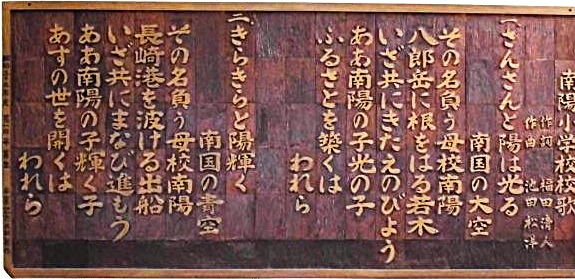 南陽小学校校歌
作詞 福田清人
作曲 池田松洋
一、さんさんと陽は光る
南国の大空
その名負う母校南陽
八郎岳に根をはる若木
いざ共にきたえのびよう
ああ南陽の子光の子
ふるさとを築くは
われら
二、きらきらと陽輝く
南国の青空
その名負う母校南陽
長崎港を波ける出船
いざ共にまなび進もう
ああ南陽の子輝く子
あすの世を開くは
われら